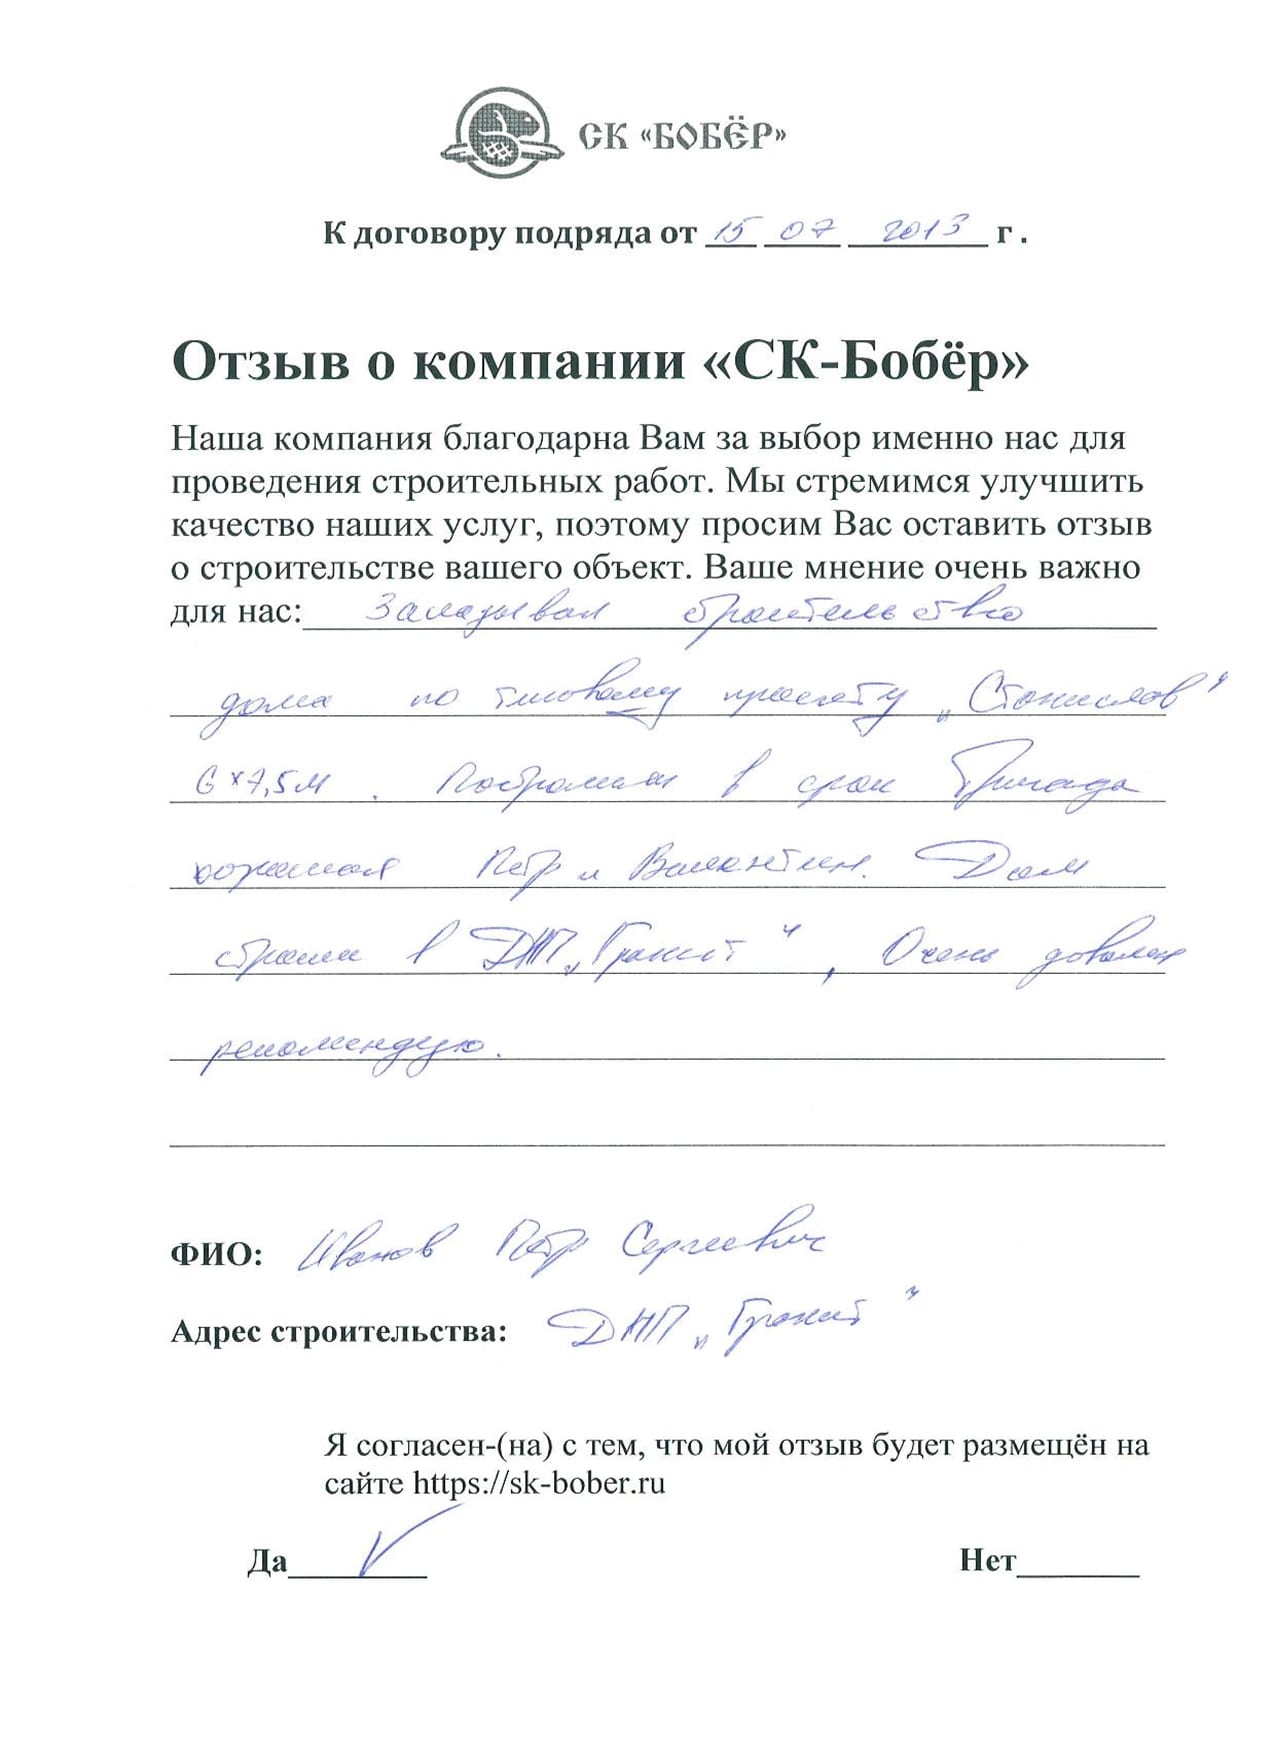 СК «БОБЁР»
К договору подряда от 15 07 2013 г .
Отзыв о компании «СК-Бобёр»
Наша компания благодарна Вам за выбор именно нас для
проведения строительных работ. Мы стремимся улучшить
качество наших услуг, поэтому просим Вас оставить отзыв
о строительстве вашего объект. Ваше мнение очень важно
для нас: Заказывал строительство
дома по типовому проекту „Станислав"
6х7,5м . Построили в срок Бригада
хорошая Петр и Валентин. Дом
строили в ДНП „Гранит" , Очень доволен
рекомендую.
ФИО: Иванов Петр Сергеевич
Адрес строительства: ДНП „Гранит"
Я согласен-(на) с тем, что мой отзыв будет размещён на
сайте https://sk-bober.ru
Да Нет